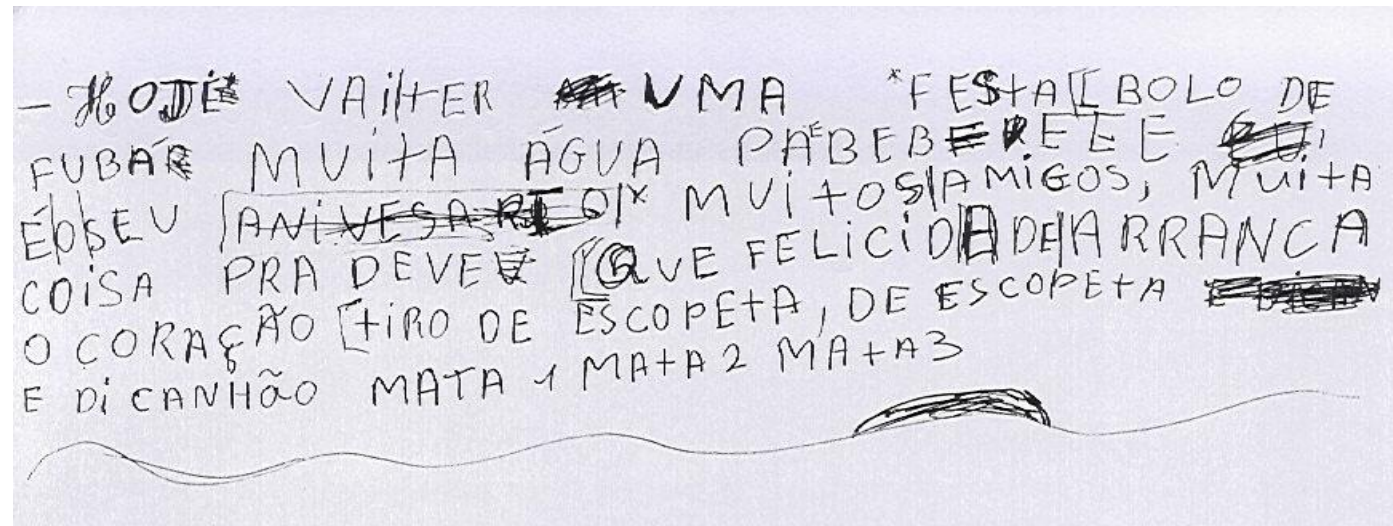 - HOJE VAI TER UMA *FESTA BOLO DE
FUBÁ MUITA ÁGUA PA BEBE E
É O SEU ANIVESARIO* MUITOS AMIGOS, MUITA
COISA PRA DEVE QUE FELICIDADE ARRANCA
O CORAÇÃO TIRO DE ESCOPETA, DE ESCOPETA
E Di CANHÃO MATA 1 MATA 2 MATA 3